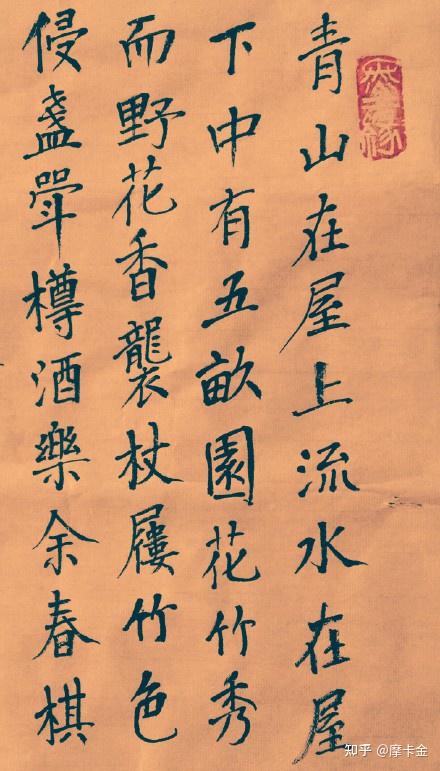 青山在屋上流水在屋
下中有五畝園花竹秀
而野花香襲杖屨竹色
侵盞斝樽酒樂余春棋
知乎 @摩卡金